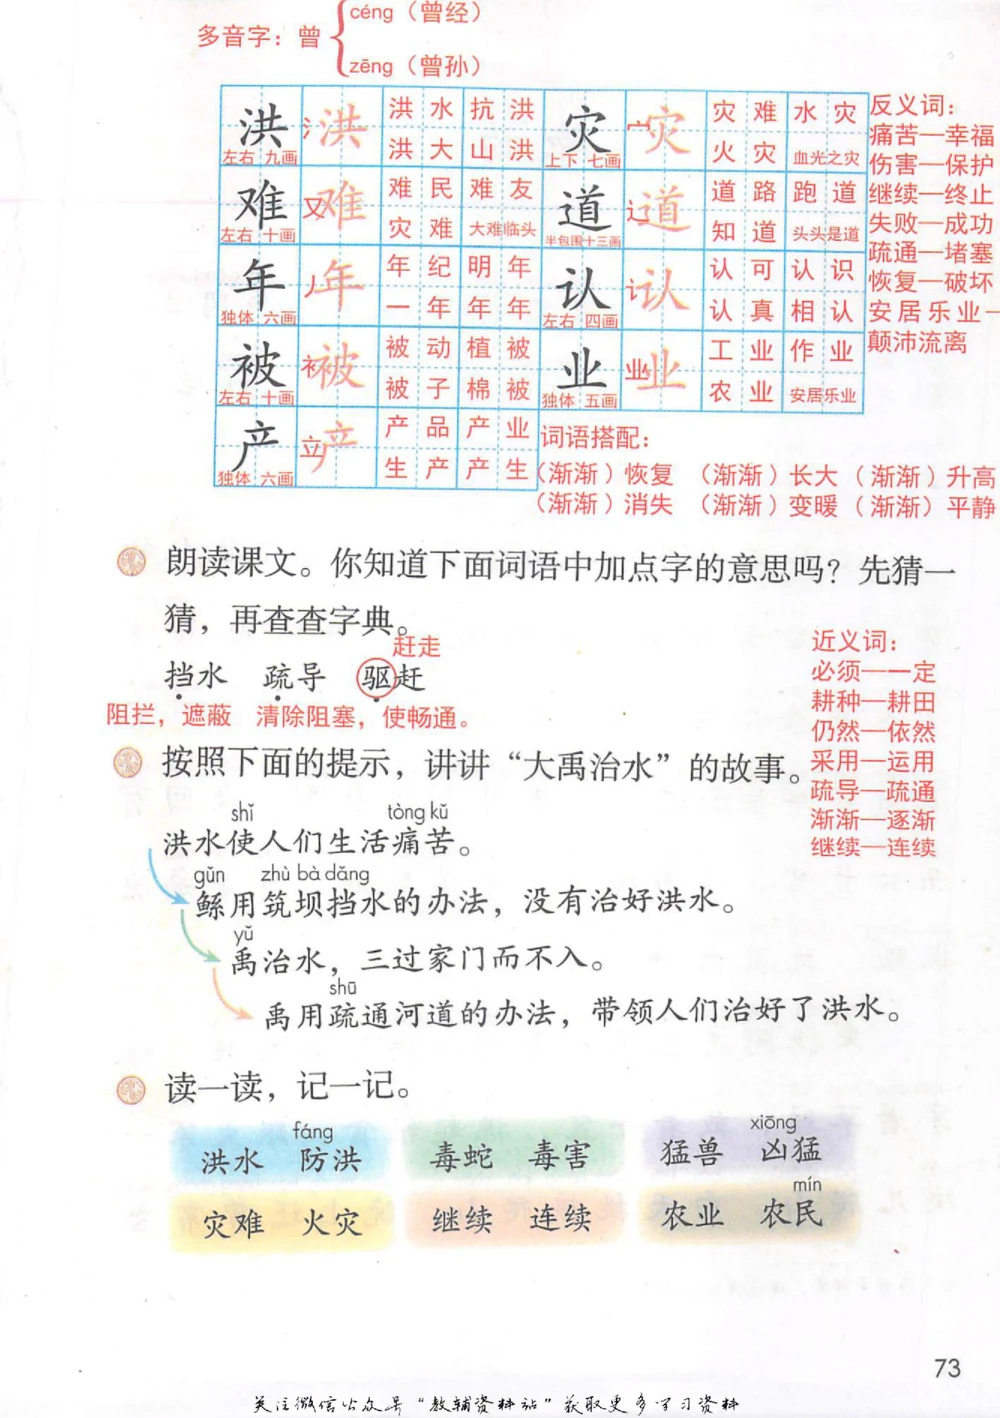 多音字：曾
céng（曾经）
zēng（曾孙）
洪 洪 洪水 抗洪 灾 灾 灾难 水灾
左右 九画 氵 洪大 山洪 上下 七画 宀 火灾 血光之灾
难 难 难民 难友 道 道 道路 跑道
左右 十画 又 灾难 大难临头 半包围 十三画 辶 知道 头头是道
年 年 年纪 明年 认 认 认可 认识
独体 六画 丿 一年 年年 左右 四画 讠 认真 相认
被 被 被动 植被 业 业 工业 作业
左右 十画 衤 被子 棉被 独体 五画 业 农业 安居乐业
产 产 产品 产业
独体 六画 立 生产 产生
反义词：
痛苦—幸福
伤害—保护
继续—终止
失败—成功
疏通—堵塞
恢复—破坏
安居乐业—
颠沛流离
词语搭配：
（渐渐）恢复 （渐渐）长大 （渐渐）升高
（渐渐）消失 （渐渐）变暖 （渐渐）平静
朗读课文。你知道下面词语中加点字的意思吗？先猜一
猜，再查查字典。
赶走
挡水 疏导 驱赶
阻拦，遮蔽 清除阻塞，使畅通。
近义词：
必须—一定
耕种—耕田
仍然—依然
采用—运用
疏导—疏通
渐渐—逐渐
继续—连续
按照下面的提示，讲讲“大禹治水”的故事。
shǐ tòng kǔ
洪水使人们生活痛苦。
gǔn zhù bà dǎng
鲧用筑坝挡水的办法，没有治好洪水。
yǔ
禹治水，三过家门而不入。
shū
禹用疏通河道的办法，带领人们治好了洪水。
读一读，记一记。
fáng xiōng
洪水 防洪 毒蛇 毒害 猛兽 凶猛
mín
灾难 火灾 继续 连续 农业 农民
73
关注微信公众号“教辅资料站”获取更多学习资料